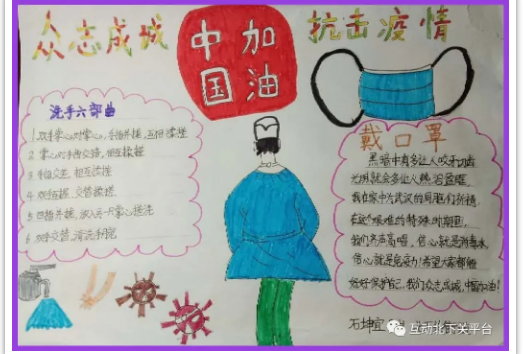 众志成城
中国加油
抗击疫情
洗手六部曲
1. 双手掌心对掌心,手指并拢,互相揉搓
2. 掌心对手指交错,相互揉搓
3. 手指交叉,相互揉搓
4. 双手互握,交替揉搓
5. 四指并拢,放入另一只掌心搓洗
6. 双手交替,清洗手腕
戴口罩
黑暗中有多让人咬牙切齿
光明就会多让人熱泪盈眶
我在家中为武汉的同胞们祈祷
在这个艰难的特殊时期里
我们齐声高唱,信心就是消毒水
信心就是免疫力!希望大家都能
好好保护自己,我们众志成城,中国加油!
互动北下关平台